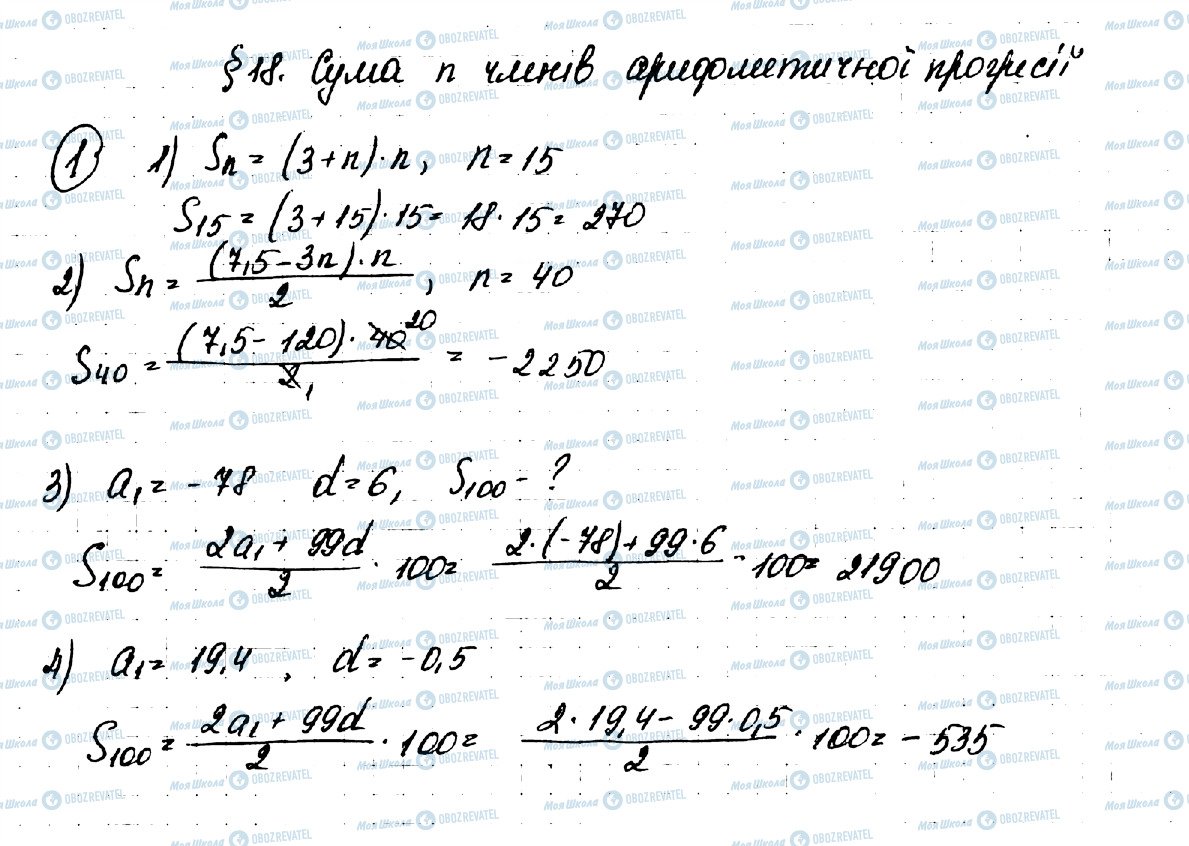 § 18. Сума n членів арифметичної прогресії
1 1) Sn = (3+n)·n, n = 15
S15 = (3+15)·15 = 18·15 = 270
2) Sn = (7,5-3n)·n / 2, n = 40
S40 = (7,5-120)·40 20 / 2 1 = -2250
3) a1 = -78 d = 6, S100 - ?
S100 = 2a1 + 99d / 2 · 100 = 2·(-78)+99·6 / 2 · 100 = 21900
4) a1 = 19,4, d = -0,5
S100 = 2a1 + 99d / 2 · 100 = 2·19,4 - 99·0,5 / 2 · 100 = -535
Моя Школа OBOZREVATEL